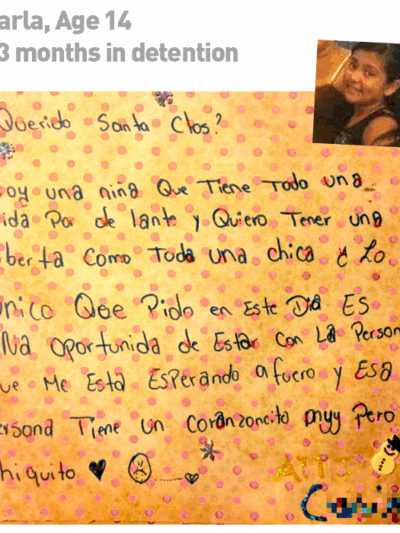 arla, Age 14
3 months in detention
Querido Santa Clos?
oy una niña Que Tiene Todo una
ida Por de lante y Quiero Tener una
iberta Como Toda una chica y Lo
nico Que Pido en Este Dia ES
Na oportunida de Estar Con La Person
ue Me Esta ESPErando afuero y Esa
ersona Tiene Un Coranzoncito muy Pero
hiquito